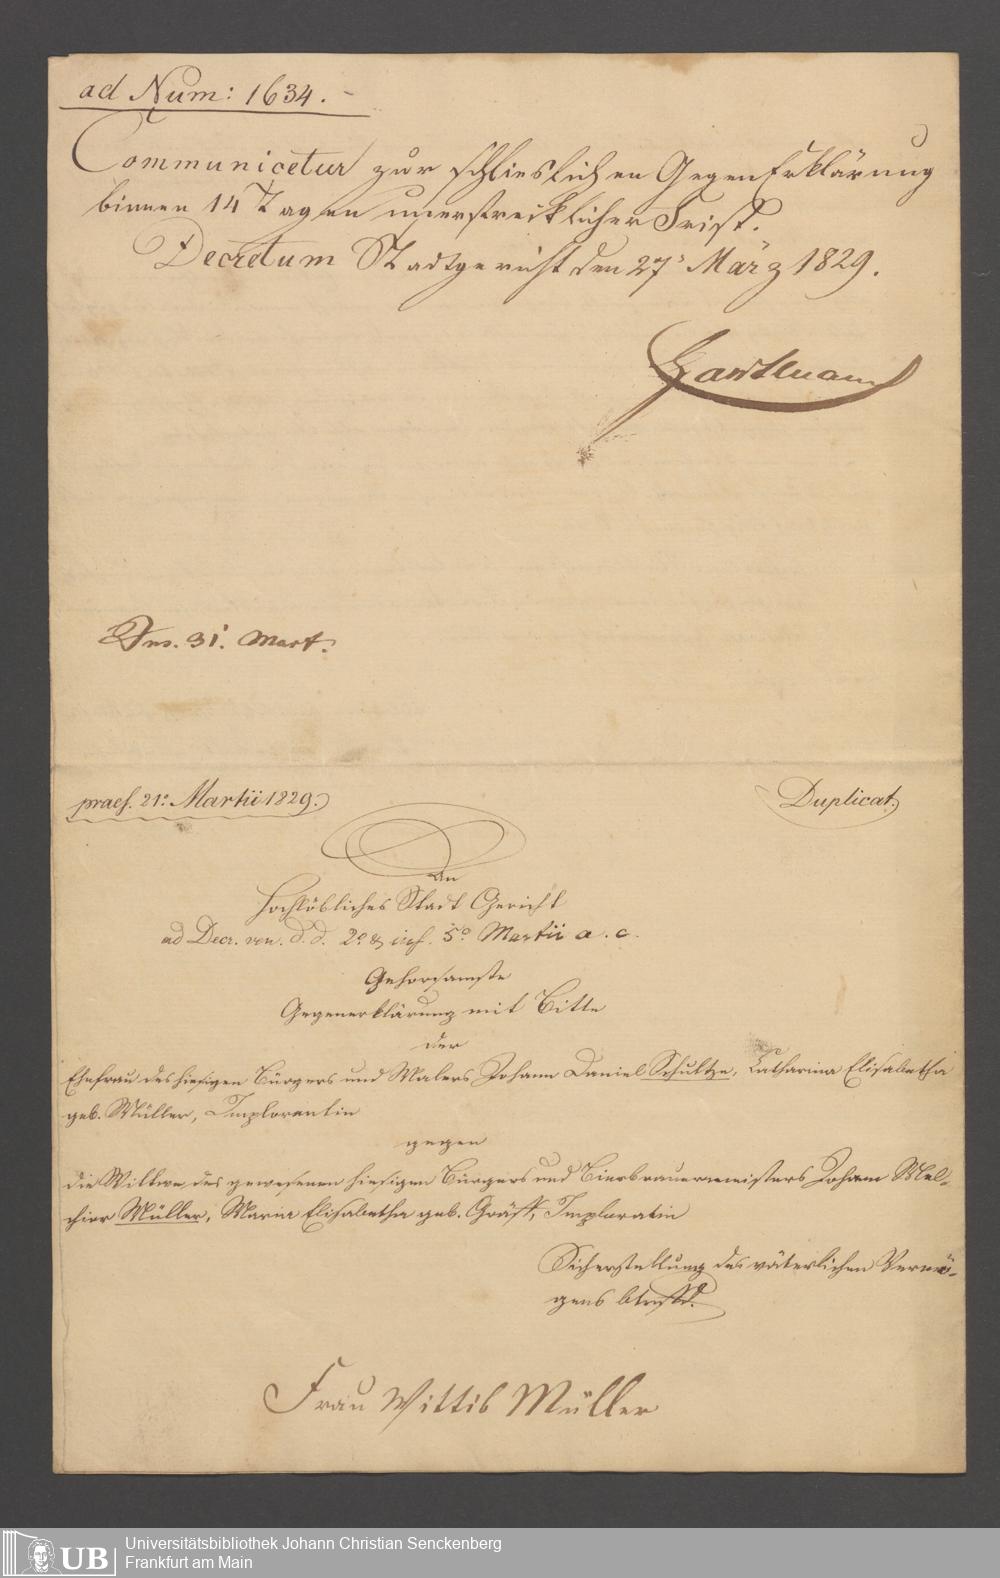 ad Num: 1634.
Communicetur zur schlieslichen GegenErklärung
binnen 14 Tagen unerstrecklicher Frist.
Decretum Stadtgericht den 27' März 1829.
Ins. 31. Mart.
praes. 21º Martii 1829.
Duplicat.
An
Hochlöbliches Stadt Gericht
ad Decr. ven. d. d. 2º & ins. 5º Martii a. c.
Gehorsamste
Gegenerklärung mit Bitte
der
Ehefrau des hiesigen Bürgers und Malers Johann Daniel Schultze, Catharina Elisabetha
geb. Müller, Implorantin
gegen
die Wittwe des gewesenen hiesigen Bürgers und Bierbrauermeisters Johann Mel-
chior Müller, Maria Elisabetha geb. Gräff, Imploratin
Sicherstellung des väterlichen Vermö-
gens betrfd.
Frau Wittib Müller
UB
Universitätsbibliothek Johann Christian Senckenberg
Frankfurt am Main